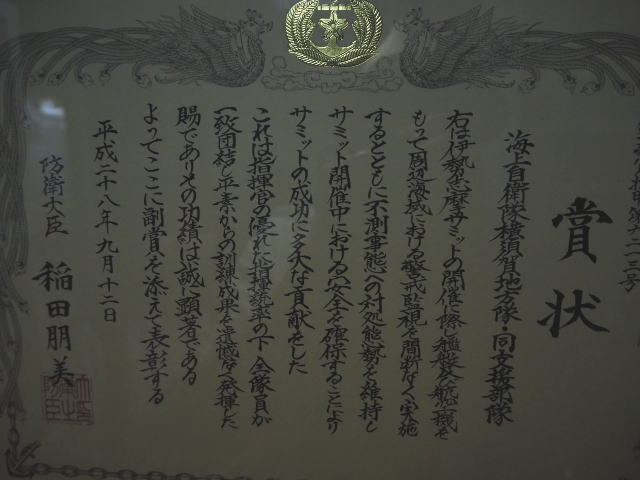 賞状
海上自衛隊横須賀地方隊・同支援部隊
右は伊勢志摩サミットの開催に際し艦艇及び航空機を
もって周辺海域における警戒監視を間断なく実施
するとともに不測事態への対処態勢を維持し
サミット開催中における安全を確保することにより
サミットの成功に多大な貢献をした
これは指揮官の優れた指揮統率の下全隊員が
一致団結し平素からの訓練成果を遺憾なく発揮した
賜でありその功績は誠に顕著である
よってここに副賞を添えて表彰する
平成二十八年九月十二日
防衛大臣 稲田朋美